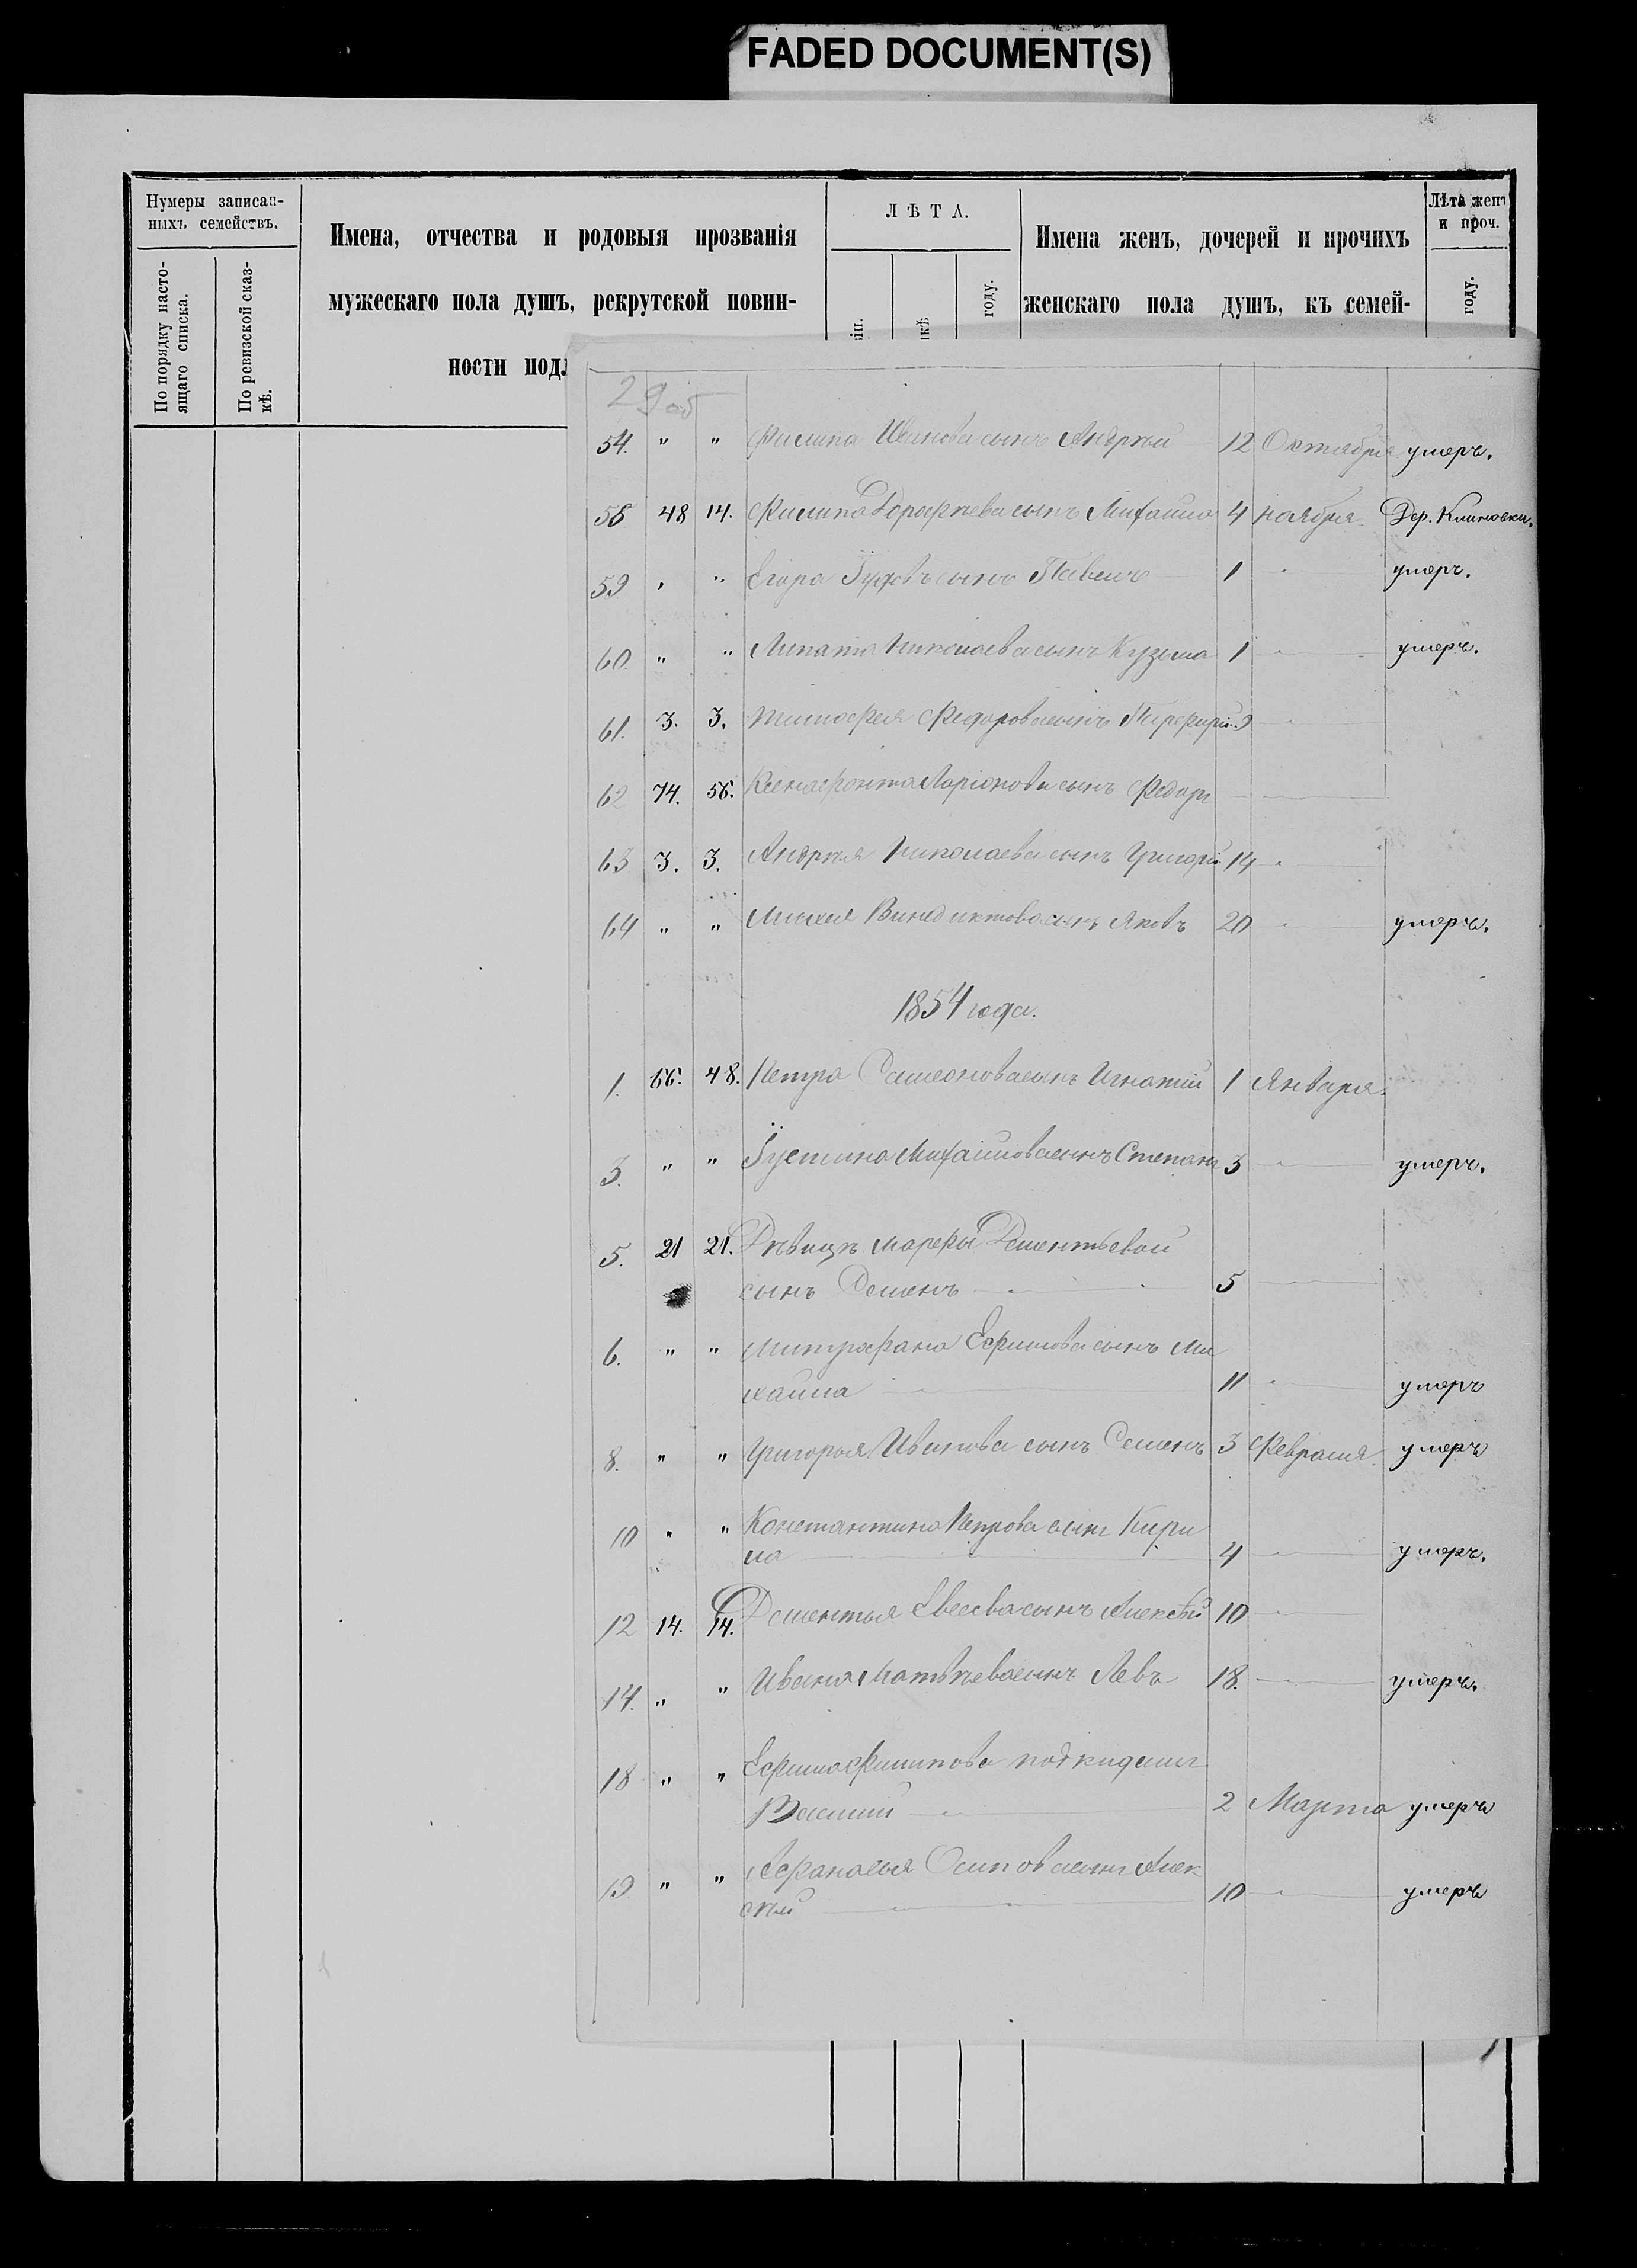 FADED DOCUMENT(S)
Нумеры записан-
ныхъ семействъ.
По порядку насто-
ящаго списка.
По ревизской сказ-
кѣ.
Имена, отчества и родовыя прозванія
мужескаго пола душъ, рекрутской повин-
ности подл
ЛѢТА.
іи.
кѣ
году.
Имена женъ, дочерей и прочихъ
женскаго пола душъ, къ семей-
Лѣта женъ
и проч.
году.
29 об
54. " " Филипа Иванова сынъ Андрѣй 12 Октября умеръ.
58 48 14. Филипа Дорофѣева сынъ Михайло 4 ноября Дер. Климовки.
59 " " Егора сынъ Павелъ 1 умеръ.
60. " " Липата Николаева сынъ Кузьма 1 умеръ.
61. 3. 3. Тимофея Федорова сынъ Перфирій 9
62 74. 56. Ксенофонта Ларіонова сынъ Федоръ
63 3. 3. Андрѣя Николаева сынъ Григорій 14
64 " " Винедиктова сынъ Яковъ 20 умеръ.
1854 года.
1. 66. 48. Петра Самсонова сынъ Игнатій 1 Января.
3. " " Іустина Михайлова сынъ Степанъ 3 умеръ.
5. 21 21. Дѣвицы Марфы Дементьевой
сынъ Семенъ 5
6. " " Митрофана Ефимова сынъ Ми
хайла 11 умеръ
8. " " Григорья Иванова сынъ Семенъ 3 Февраля умеръ
10 " " Константина Петрова сынъ Кири
ла 4 умеръ.
12 14. 14. Дементья Евсева сынъ Алексѣй 10
14. " " Ивана Матвѣева сынъ Левъ 18. умеръ.
18 " " Ефима Филипова подкидышъ
Василій 2 Марта умеръ
19. " " Афанасья Осипова сынъ Алек
сѣй 10 умеръ